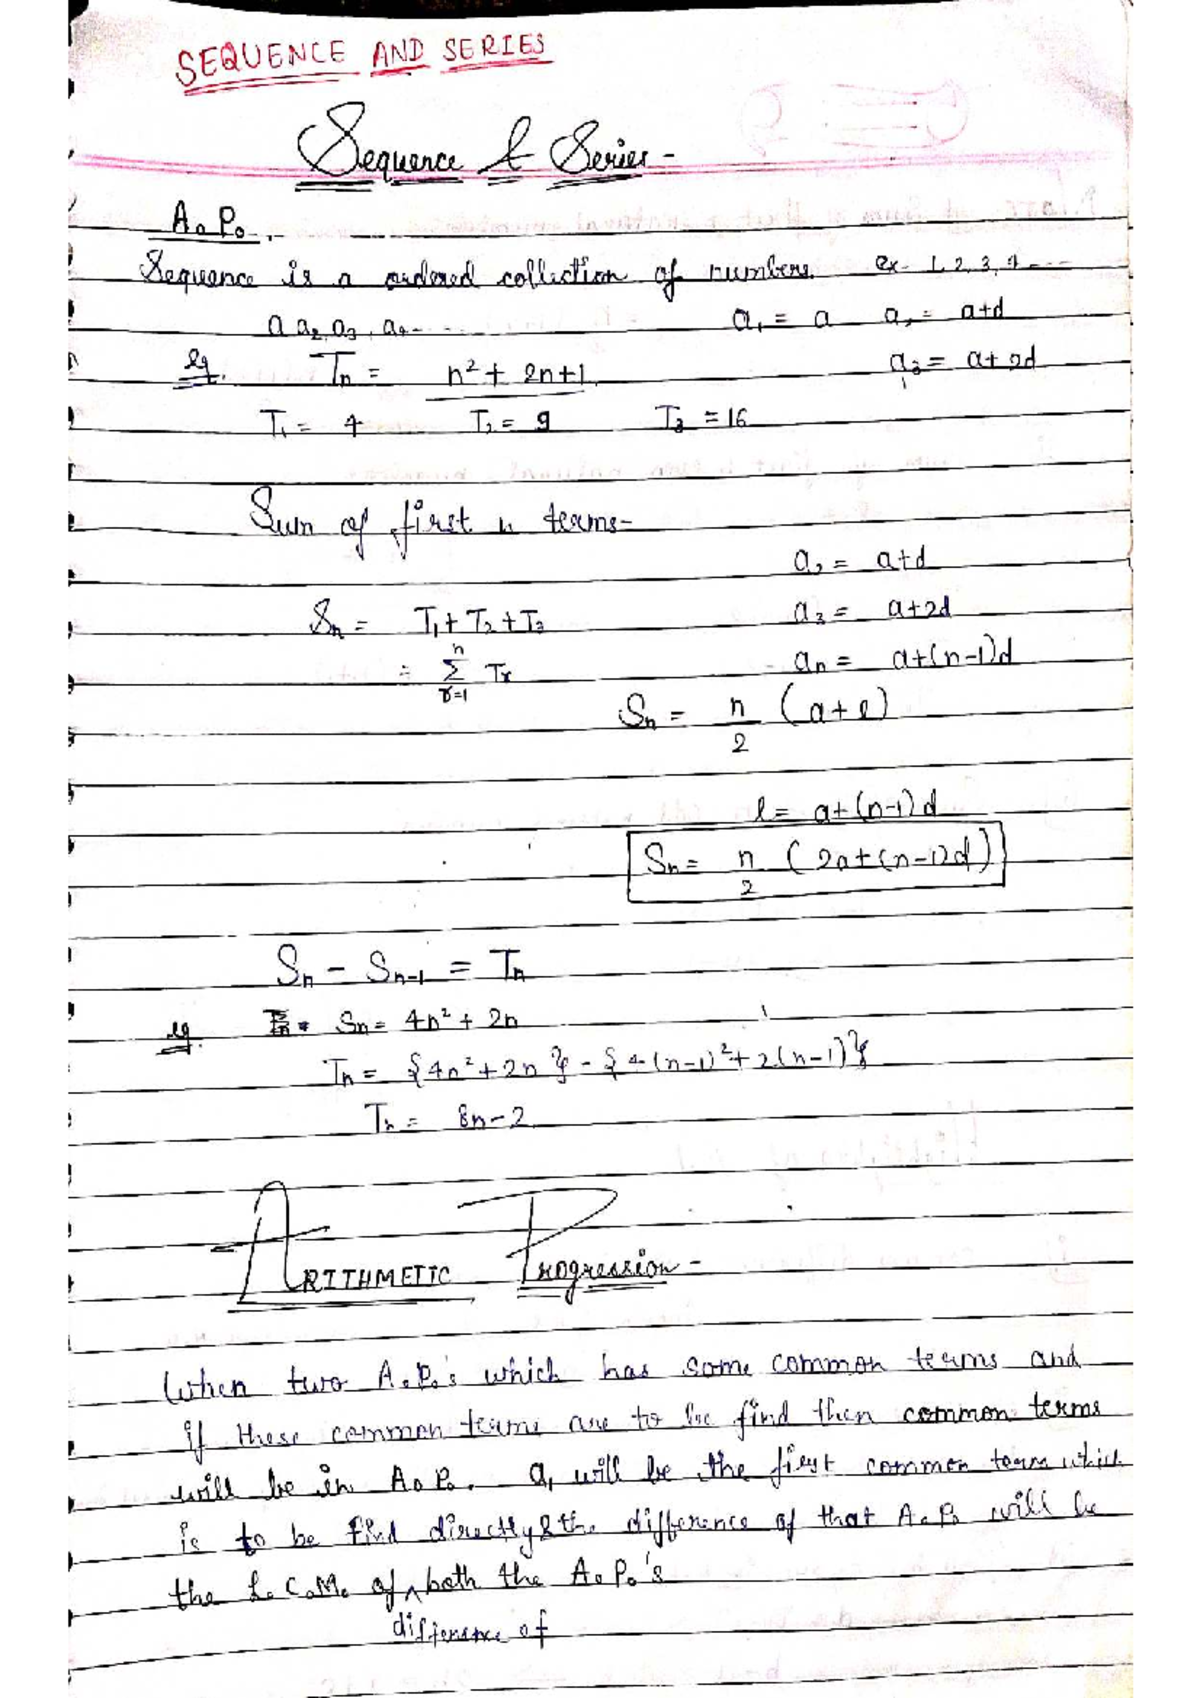 SEQUENCE AND SERIES
Sequence & Series -
A.P.
Sequence is a ordered collection of numbers. ex- 1, 2, 3, 4 ----
a a2, a3, a4- - - a1 = a a2 = a+d
eg. Tn = n² + 2n+1 a3 = a+2d
T1 = 4 T2 = 9 T3 = 16
Sum of first n terms-
a2 = a+d
Sn = T1 + T2 + T3 a3 = a+2d
= n∑r=1 Tr an = a+(n-1)d
Sn = n/2 (a+l)
l = a+(n-1)d
Sn = n/2 (2a+(n-1)d)
Sn - Sn-1 = Tn
eg. Sn = 4n² + 2n
Tn = {4n² + 2n} - {4(n-1)² + 2(n-1)}
Tn = 8n-2
ARITHMETIC Progression -
When two A.P.'s which has some common terms and
if these common terms are to be find then common terms
will be in A.P.. a1 will be the first common term which
is to be find directly & the difference of that A.P. will be
the L.C.M. of ^ both the A.P.'s
difference of